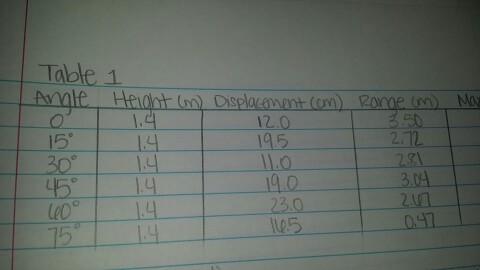 Table 1
Angle Height (m) Displacement (cm) Range (m)
0° 1.4 12.0 3.50
15° 1.4 19.5 2.72
30° 1.4 11.0 2.81
45° 1.4 19.0 3.04
60° 1.4 23.0 2.67
75° 1.4 16.5 0.47